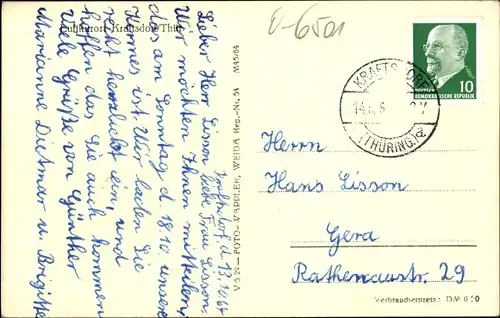 Luftkurort Kraftsdorf Thür.
0-6501
Kraftsdorf, d. 13.10.64
Lieber Herr Lisson, liebe Frau Lisson.
Wir möchten Ihnen mitteilen,
das am Sonntag d. 18.10. unsere
Kirmes ist. Wir laden Sie
recht herzlichst ein, und
hoffen das Sie auch kommen
Viele Grüße von Günther
Marianne Dietmar u. Brigitte
V 5 29 — FOTO-WAPPLER, WEIDA Reg.-Nr. 54 M45/64
KRAFTSDORF
(THÜRING.)
10
DEUTSCHE DEMOKRATISCHE REPUBLIK
Herrn
Hans Lisson
Gera
Rathenaustr. 29
Verbraucherpreis: DM 0.20